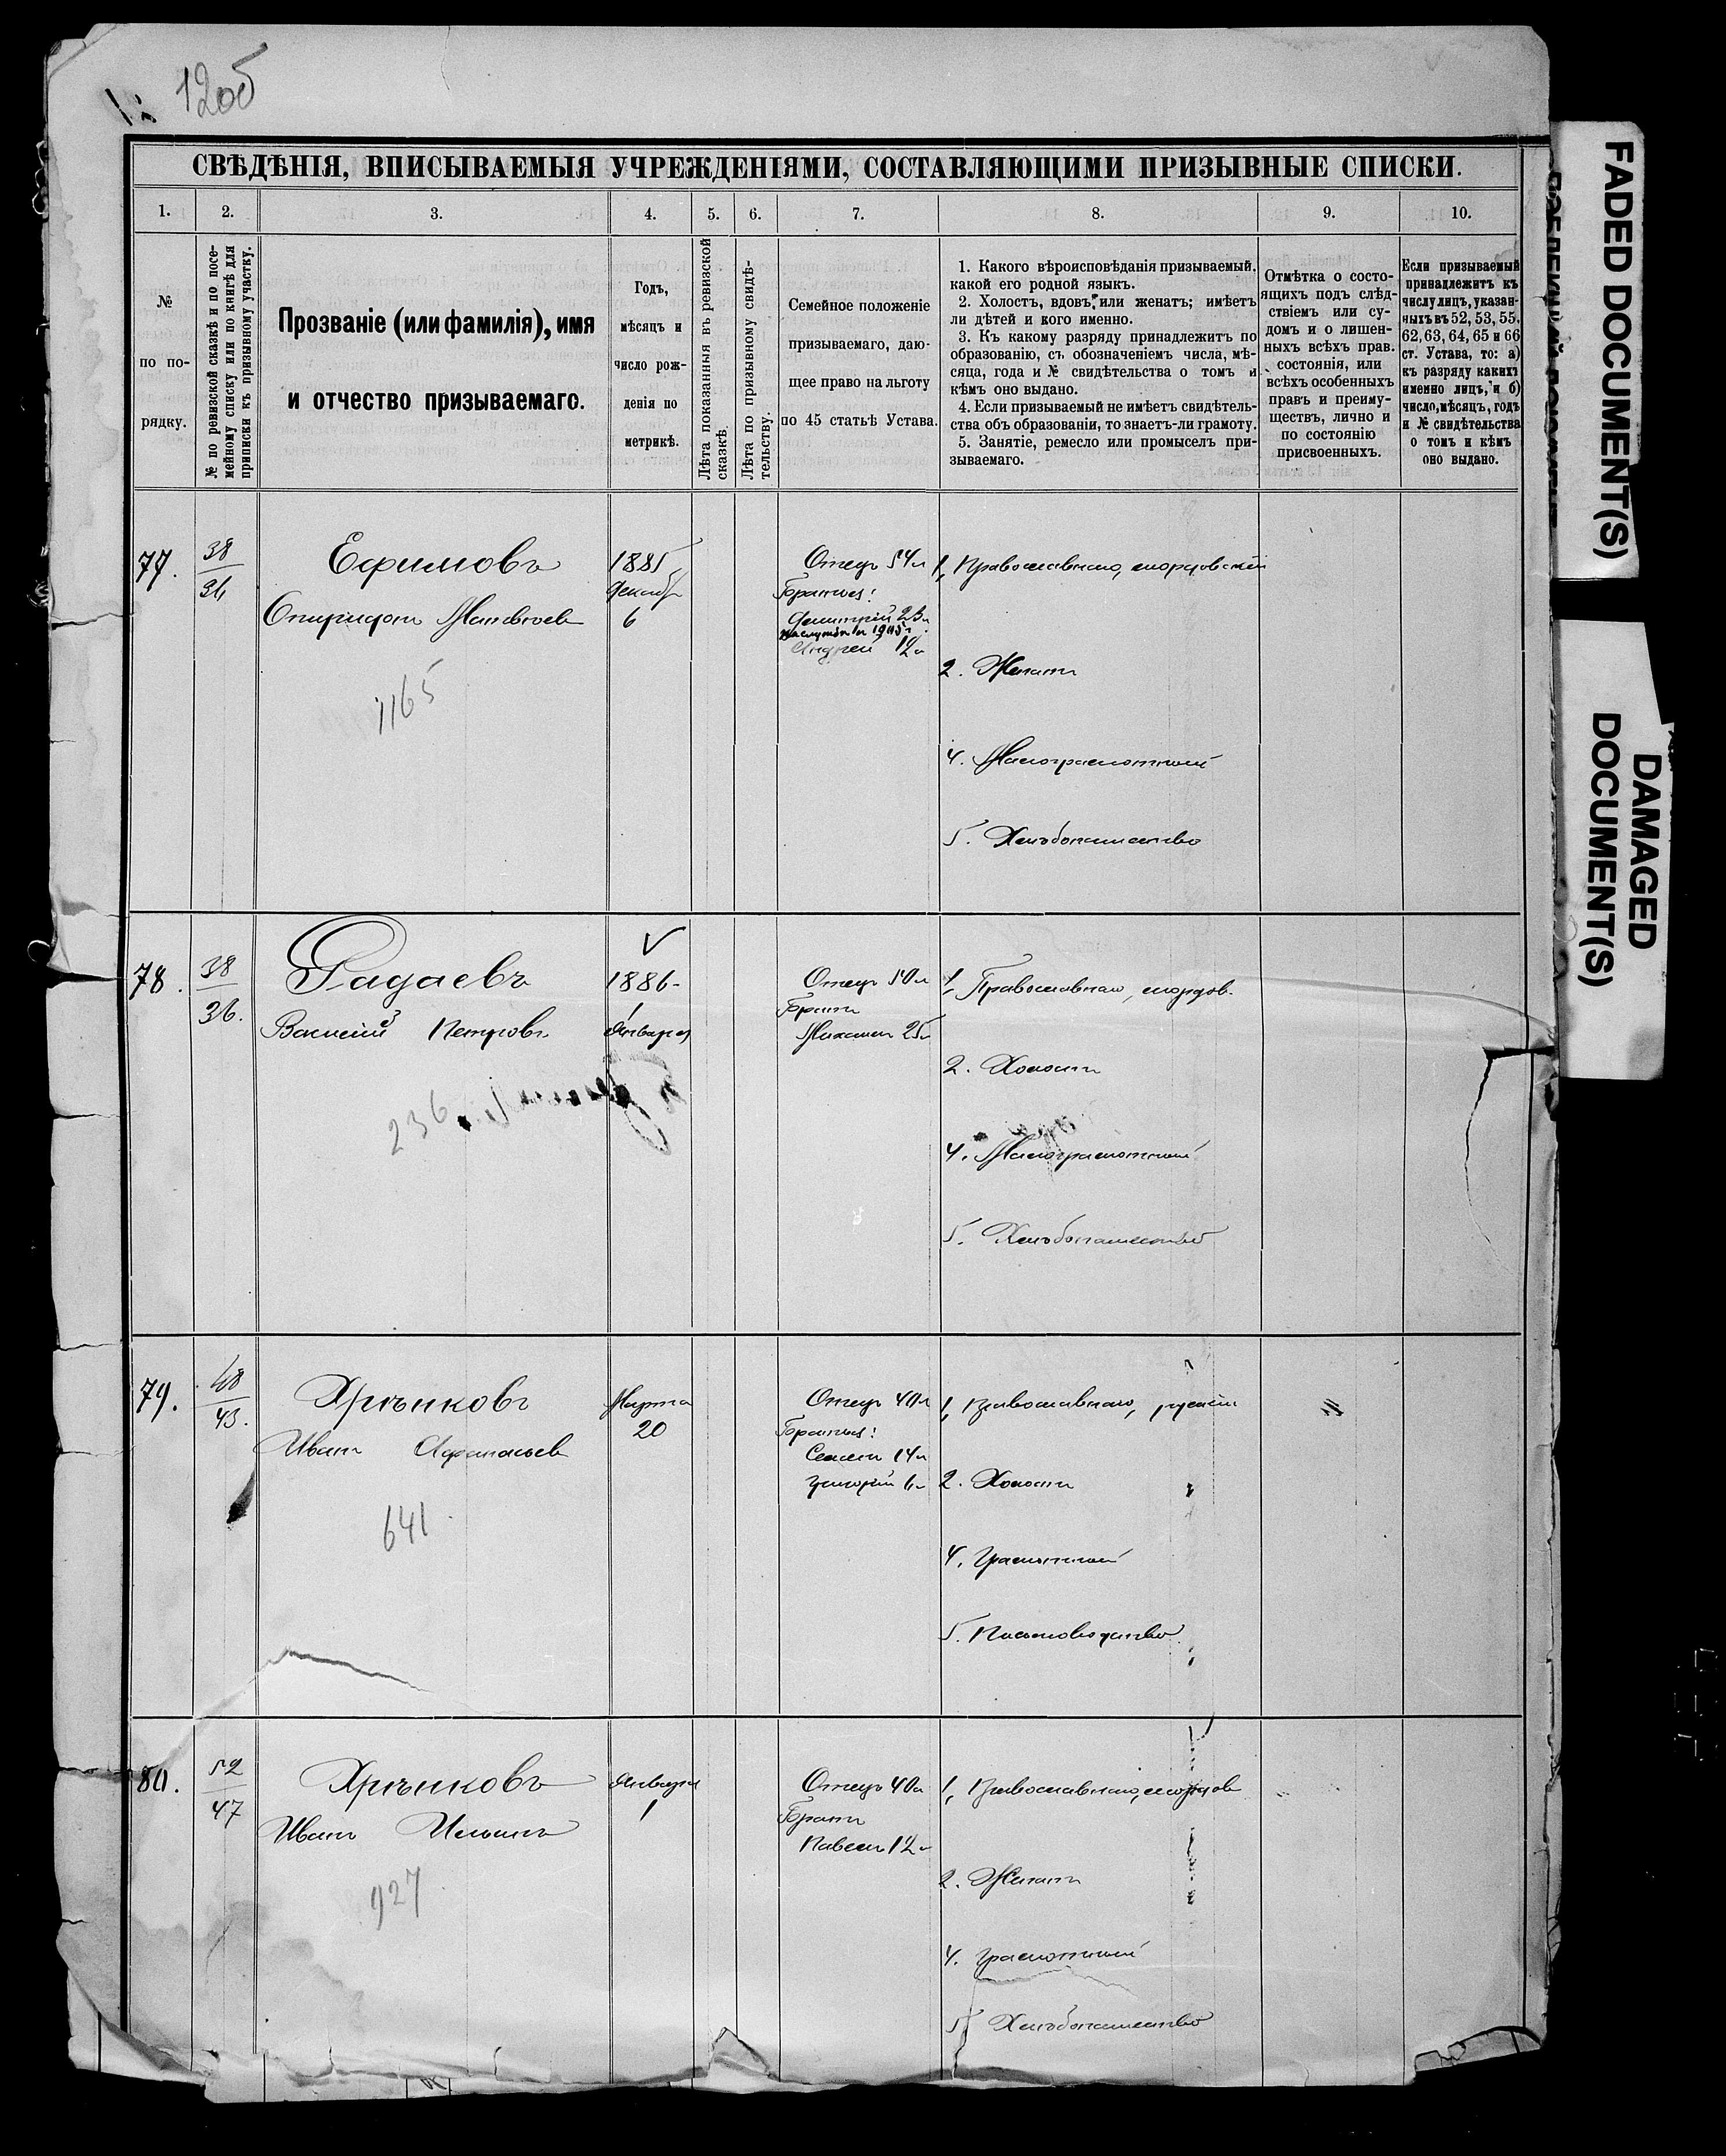 120б
СВѢДѢНІЯ, ВПИСЫВАЕМЫЯ УЧРЕЖДЕНІЯМИ, СОСТАВЛЯЮЩИМИ ПРИЗЫВНЫЕ СПИСКИ.
1. 2. 3. 4. 5. 6. 7. 8. 9. 10.
№
по по-
рядку.
№ по ревизской сказкѣ и по посе-
мейному списку или по книгѣ для
приписки къ призывному участку.
Прозваніе (или фамилія), имя
и отчество призываемаго.
Годъ,
мѣсяцъ и
число рож-
денія по
метрикѣ.
Лѣта показанныя въ ревизской
сказкѣ.
Лѣта по призывному свидѣ-
тельству.
Семейное положеніе
призываемаго, даю-
щее право на льготу
по 45 статьѣ Устава.
1. Какого вѣроисповѣданія призываемый,
какой его родной языкъ.
2. Холостъ, вдовъ, или женатъ; имѣетъ
ли дѣтей и кого именно.
3. Къ какому разряду принадлежитъ по
образованію, съ обозначеніемъ числа, мѣ-
сяца, года и № свидѣтельства о томъ и
кѣмъ оно выдано.
4. Если призываемый не имѣетъ свидѣтель-
ства объ образованіи, то знаетъ-ли грамоту.
5. Занятіе, ремесло или промыселъ при-
зываемаго.
Отмѣтка о состо-
ящихъ подъ слѣд-
ствіемъ или су-
домъ и о лишен-
ныхъ всѣхъ прав.
состоянія, или
всѣхъ особенныхъ
правъ и преиму-
ществъ, лично и
по состоянію
присвоенныхъ.
Если призываемый
принадлежитъ къ
числу лицъ, указан-
ныхъ въ 52, 53, 55,
62, 63, 64, 65 и 66
ст. Устава, то: а)
къ разряду какихъ
именно лицъ, и б)
число, мѣсяцъ, годъ
и № свидѣтельства
о томъ и кѣмъ
оно выдано.
77.
38
36
Ефимовъ
Спиридонъ Матвѣевъ
1165
1885
Декабр
6
Отецъ 54 л
Братья:
Димитрій 23 л
на службѣ 1905 г.
Андрей 12 л
1, Православнаго, мордовскій
2. Женатъ
4. Малограмотный
5. Хлѣбопашество
78.
38
36.
Радаевъ
Василій Петровъ
236
1886
1
Января
Отецъ 50 л
Братъ
Михаилъ 25 л
1, Православнаго, мордов.
2. Холостъ
4. Малограмотный
5. Хлѣбопашество
79.
48
43.
Хрѣнковъ
Иванъ Афанасьевъ
641
Марта
20
Отецъ 40 л
Братья:
Семенъ 14 л
Григорій 6 л
1, Православнаго, русскій
2. Холостъ
4. Грамотный
5. Письмоводство
80.
52
47
Хрѣнковъ
Иванъ Ильинъ
927
Января
1
Отецъ 40 л
Братъ
Павелъ 12 л
1, Православнаго, мордов
2. Женатъ
4. Грамотный
5 Хлѣбопашество
FADED DOCUMENT(S)
DAMAGED
DOCUMENT(S)